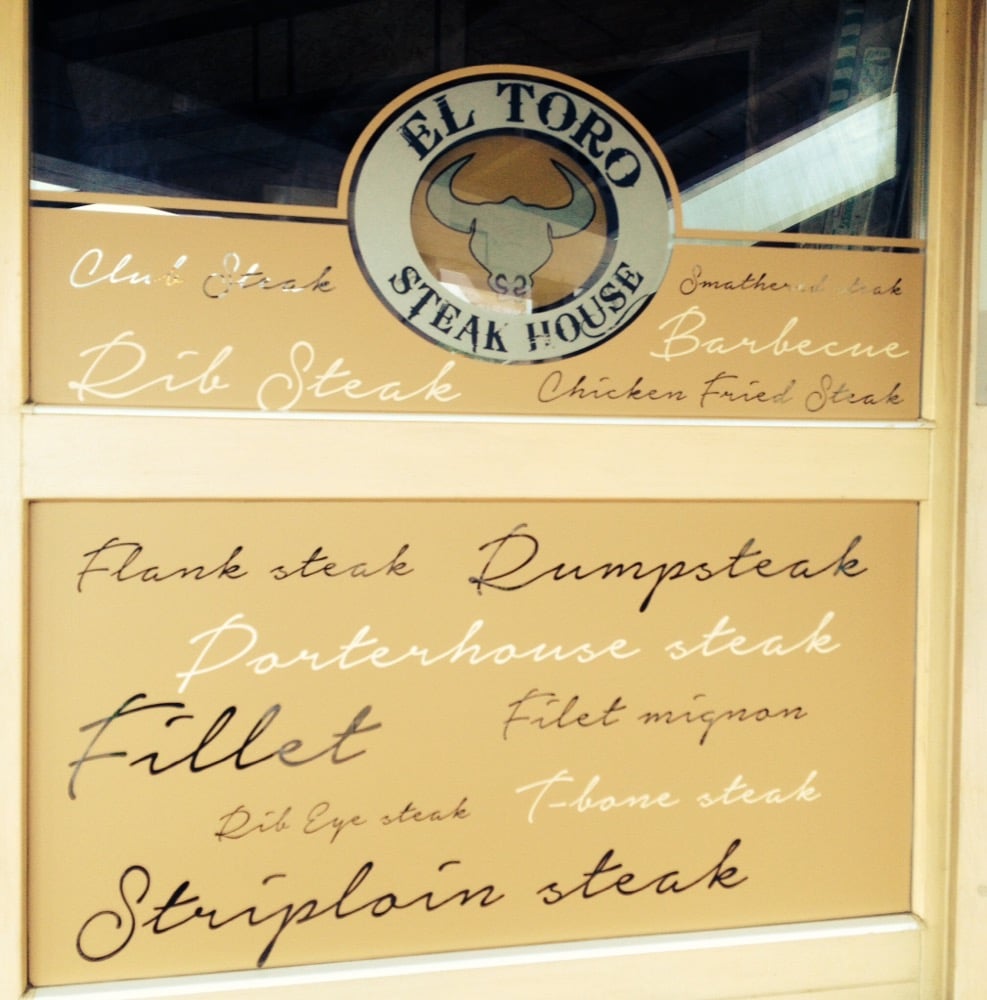 EL TORO
STEAK HOUSE
Club Steak
Smathered steak
Rib Steak
Barbecue
Chicken Fried Steak
Flank steak
Rumpsteak
Porterhouse steak
Fillet
Filet mignon
Rib Eye steak
T-bone steak
Striploin steak